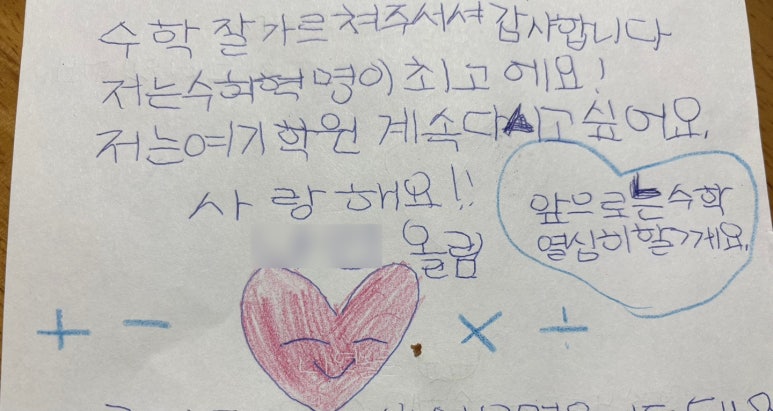 수학 잘 가르쳐주서셔 감샤합니다
저는 수학혁명이 최고에요!
저는 여기 학원 계속 다니고 싶어요.
사랑해요!!
올림
앞으로는 수학
열심히 할게요.
+ − × ÷